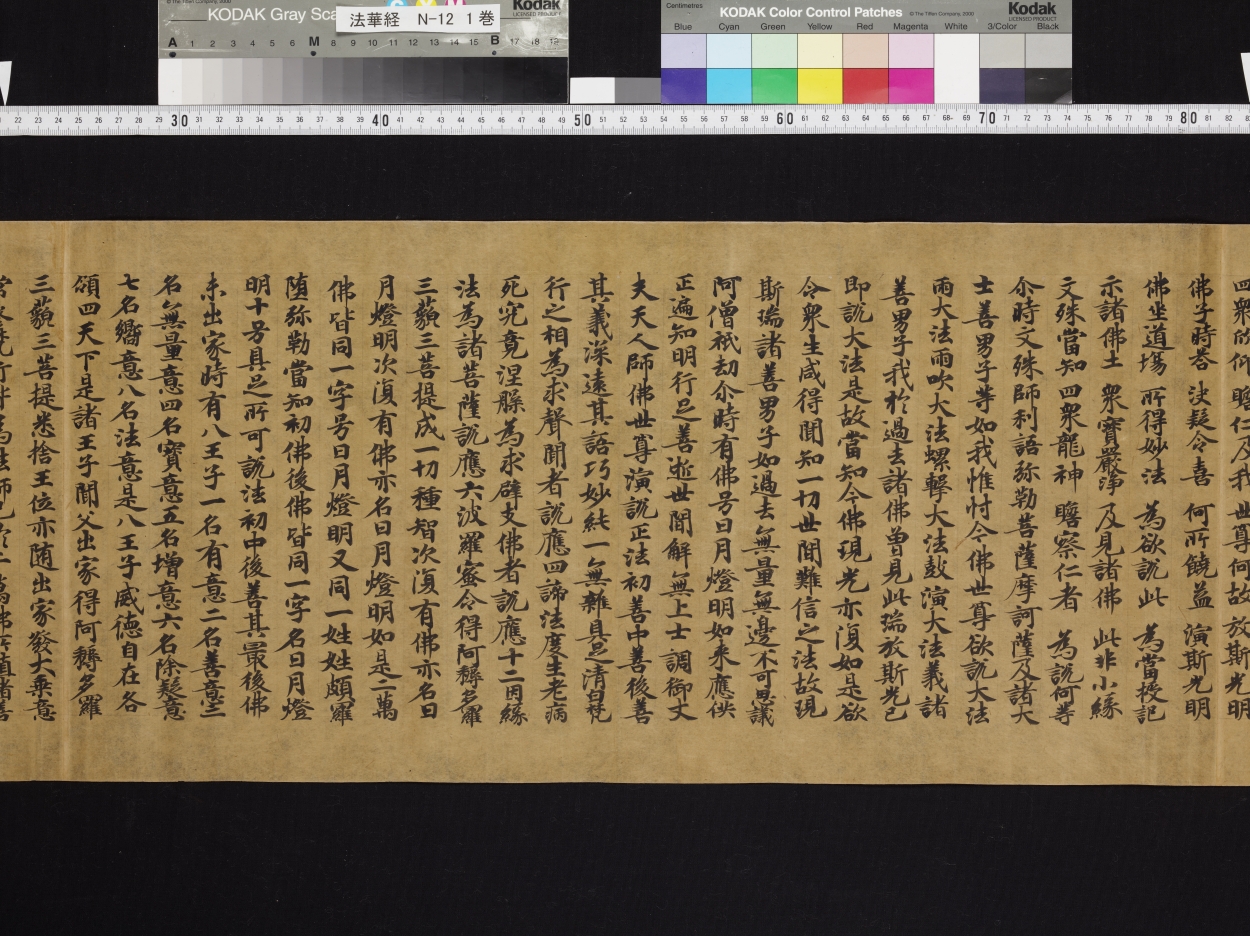 KODAK Gray Sca
© The Tiffen Company, 2000
Kodak
LICENSED PRODUCT
法華経 N-12 1巻
A 1 2 3 4 5 6 M 8 9 10 11 12 13 14 15 B 17 18 19
Centimetres
KODAK Color Control Patches
© The Tiffen Company, 2000
Kodak
LICENSED PRODUCT
Blue Cyan Green Yellow Red Magenta White 3/Color Black
22 23 24 25 26 27 28 29 30 31 32 33 34 35 36 37 38 39 40 41 42 43 44 45 46 47 48 49 50 51 52 53 54 55 56 57 58 59 60 61 62 63 64 65 66 67 68 69 70 71 72 73 74 75 76 77 78 79 80 81 82
四衆欣仰 瞻仁及我 世尊何故 放斯光明
佛子時荅 决疑令喜 何所饒益 演斯光明
佛坐道場 所得妙法 為欲說此 為當授記
示諸佛土 衆寶嚴淨 及見諸佛 此非小緣
文殊當知 四衆龍神 瞻察仁者 為說何等
尒時文殊師利語弥勒菩薩摩訶薩及諸大
士善男子等如我惟忖今佛世尊欲說大法
雨大法雨吹大法螺擊大法鼓演大法義諸
善男子我於過去諸佛曾見此瑞放斯光已
即說大法是故當知今佛現光亦復如是欲
令衆生咸得聞知一切世閒難信之法故現
斯瑞諸善男子如過去無量無邊不可思議
阿僧祇劫尒時有佛号日月燈明如来應供
正遍知明行足善逝世閒解無上士調御丈
夫天人師佛世尊演說正法初善中善後善
其義深遠其語巧妙純一無雜具足清白梵
行之相為求聲聞者說應四諦法度生老病
死究竟涅槃為求辟支佛者說應十二因緣
法為諸菩薩說應六波羅蜜令得阿耨多羅
三藐三菩提成一切種智次復有佛亦名日
月燈明次復有佛亦名日月燈明如是二萬
佛皆同一字号日月燈明又同一姓姓頗羅
堕弥勒當知初佛後佛皆同一字名日月燈
明十号具足所可說法初中後善其最後佛
未出家時有八王子一名有意二名善意三
名無量意四名寶意五名增意六名除疑意
七名嚮意八名法意是八王子威德自在各
領四天下是諸王子聞父出家得阿耨多羅
三藐三菩提悉捨王位亦随出家發大乗意